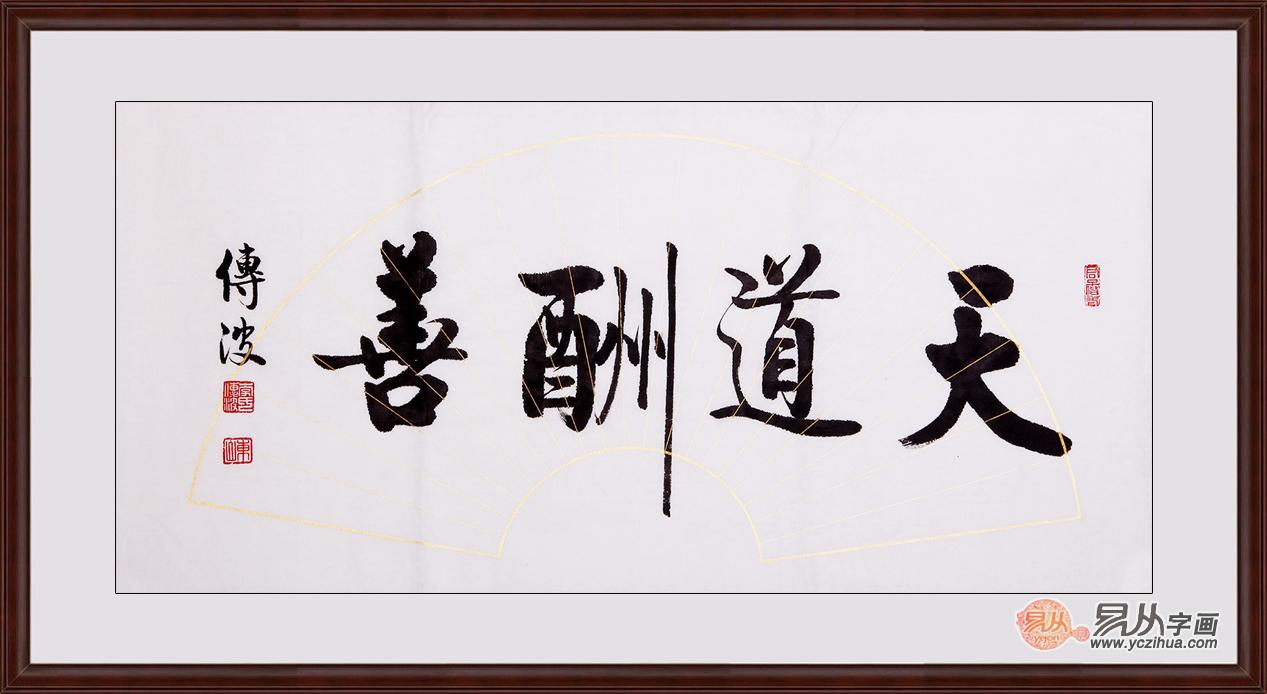 天道酬善
傳波
易从
yicjon
易从字画
www.yczihua.com